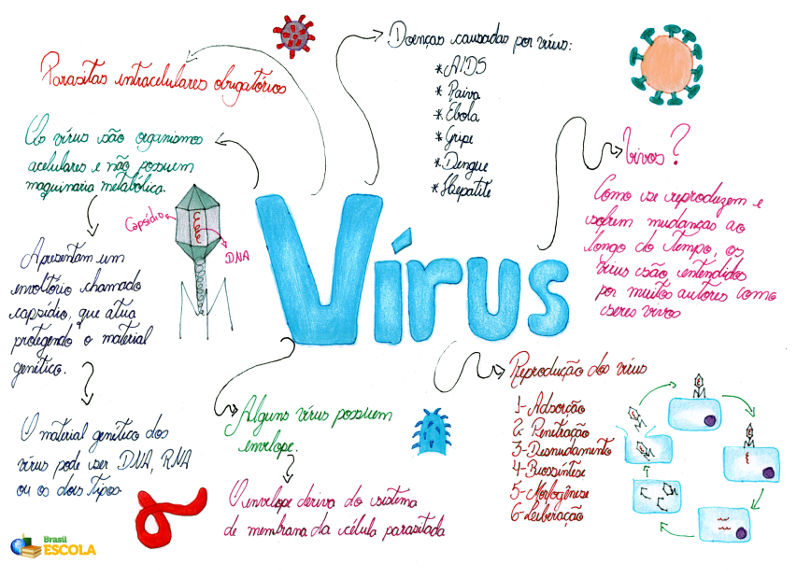 Vírus
Parasitas intracelulares obrigatórios
Os vírus são organismos
acelulares e não possuem
maquinaria metabólica.
Capsídio
DNA
Apresentam um
envoltório chamado
capsídio, que atua
protegendo o material
genético.
O material genético dos
vírus pode ser DNA, RNA
ou os dois tipos
Alguns vírus possuem
envelope.
O envelope deriva do sistema
de membrana da célula parasitada
Doenças causadas por vírus:
* AIDS
* Raiva
* Ebola
* Gripe
* Dengue
* Hepatite
Vivos?
Como se reproduzem e
sofrem mudanças ao
longo do tempo, os
vírus são entendidos
por muitos autores como
seres vivos
Reprodução dos vírus
1- Adsorção
2- Penetração
3- Desnudamento
4- Biossíntese
5- Morfogênese
6- Liberação
Brasil
ESCOLA